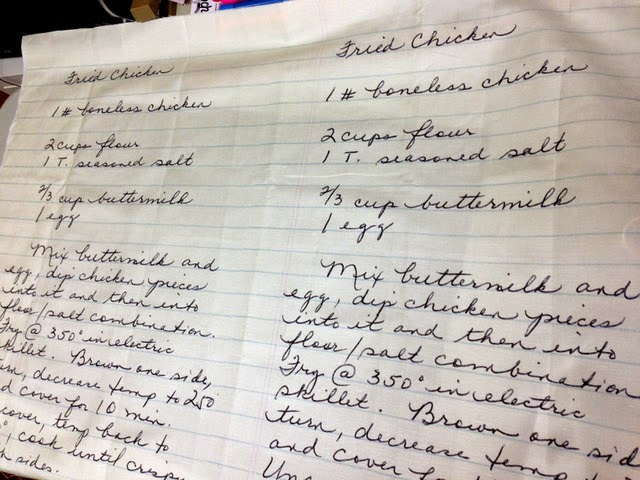 Fried Chicken
1 # boneless chicken
2 cups flour
1 T. seasoned salt
2/3 cup buttermilk
1 egg
Mix buttermilk and
egg, dip chicken pieces
into it and then into
floor/salt combination.
Fry @ 350° in electric
skillet. Brown one side,
decrease temp to 250
cover for 10 min.
cover, temp back to
cook until crispy
sides.
Fried Chicken
1 # boneless chicken
2 cups flour
1 T. seasoned salt
2/3 cup buttermilk
1 egg
Mix buttermilk and
egg, dip chicken pieces
into it and then into
floor/salt combination
Fry @ 350° in electric
skillet. Brown one sid
turn, decrease temp
and cover